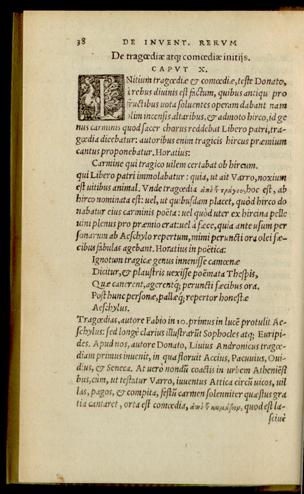 38 DE INVENT. RERUM
De tragœdiæ atq; comœdiæ initijs.
CAPUT X.
INitium tragœdiæ & comœdiæ, teste Donato,
à rebus diuinis est factum, quibus antiqui pro
fructibus uota soluentes operam dabant. nam
olim incensis altaribus, & admoto hirco, id ge
nus carminis quod sacer chorus reddebat Libero patri, tra-
gœdia dicebatur: autoribus enim tragicis hircus præmium
cantus proponebatur. Horatius:
Carmine qui tragico uilem certabat ob hircum.
qui Libero patri immolabatur: quia, ut ait Varro, noxium
est uitibus animal. Vnde tragœdia ἀπὸ τ̃ τράγου, hoc est, ab
hirco nominata est: uel, ut quibusdam placet, quòd hirco do
nabatur eius carminis poëta: uel quòd uter ex hircina pelle
uini plenus pro præmio erat: uel à fæce, quia ante usum per
sonarum ab Aeschylo repertum, mimi peruncti ora olei fæ-
cibus fabulas agebant. Horatius in poëtica:
Ignotum tragicæ genus inuenisse camœnæ
Dicitur, & plaustris uexisse poëmata Thespis,
Quæ canerent, agerentq; peruncti fæcibus ora.
Post hunc personæ, pallæq; repertor honestæ
Aeschylus.
Tragœdias, autore Fabio in 10. primus in lucē protulit Ae-
schylus: sed longè clarius illustrarūt Sophocles atq; Euripi-
des. Apud nos, autore Donato, Liuius Andronicus tragœ-
diam primus inuenit, in qua floruit Accius, Pacuuius, Oui-
dius, & Seneca. At uerò nondū coactis in urbem Atheniēsi
bus, cùm, ut testatur Varro, iuuentus Attica circū uicos, uil
las, pagos, & compita, festū carmen solenniter quæstus gra
tia cantaret, orta est comœdia, ἀπὸ τ̃ κωμάζειν, quod est la-
sciuè